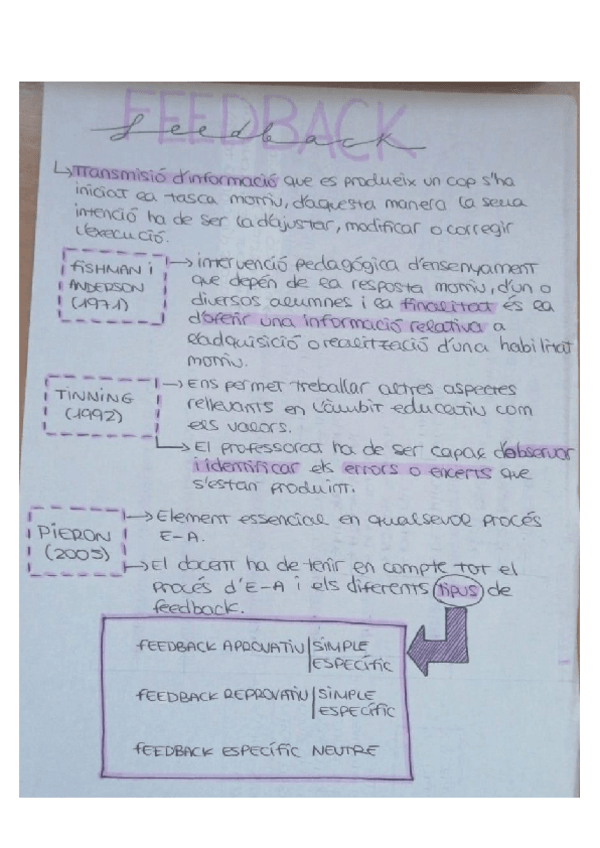 FEEDBACK
feedback
↳ Transmisió d'informació que es produeix un cop s'ha
iniciat la tasca motriu, d'aquesta manera la seua
intenció ha de ser la d'ajustar, modificar o corregir
l'execució.
FISHMAN i
ANDERSON
(1971)
→ intervenció pedagógica d'ensenyament
que depén de la resposta motriu, d'un o
diversos alumnes i la finalitat és la
d'oferir una informació relativa a
l'adquisició o realització d'una habilitat
motriu.
TINNING
(1992)
→ Ens permet treballar altres aspectes
rellevants en l'àmbit educatiu com
els valors.
→ El professorat ha de ser capaç d'observar
i identificar els errors o encerts que
s'estan produint.
PIERON
(2005)
→ Element essencial en qualsevol procés
E-A.
→ El docent ha de tenir en compte tot el
procés d'E-A i els diferents tipus de
feedback.
FEEDBACK APROVATIU | SIMPLE
ESPECÍFIC
FEEDBACK REPROVATIU | SIMPLE
ESPECÍFIC
FEEDBACK ESPECÍFIC NEUTRE